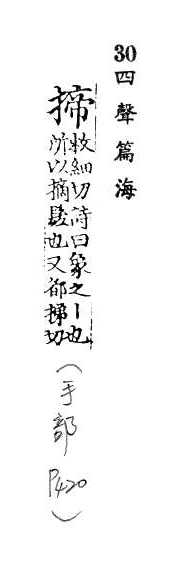 30四聲篇海
揥
敕細切詩曰象之丨也
所以摘髮也又都切
(手部 P420)